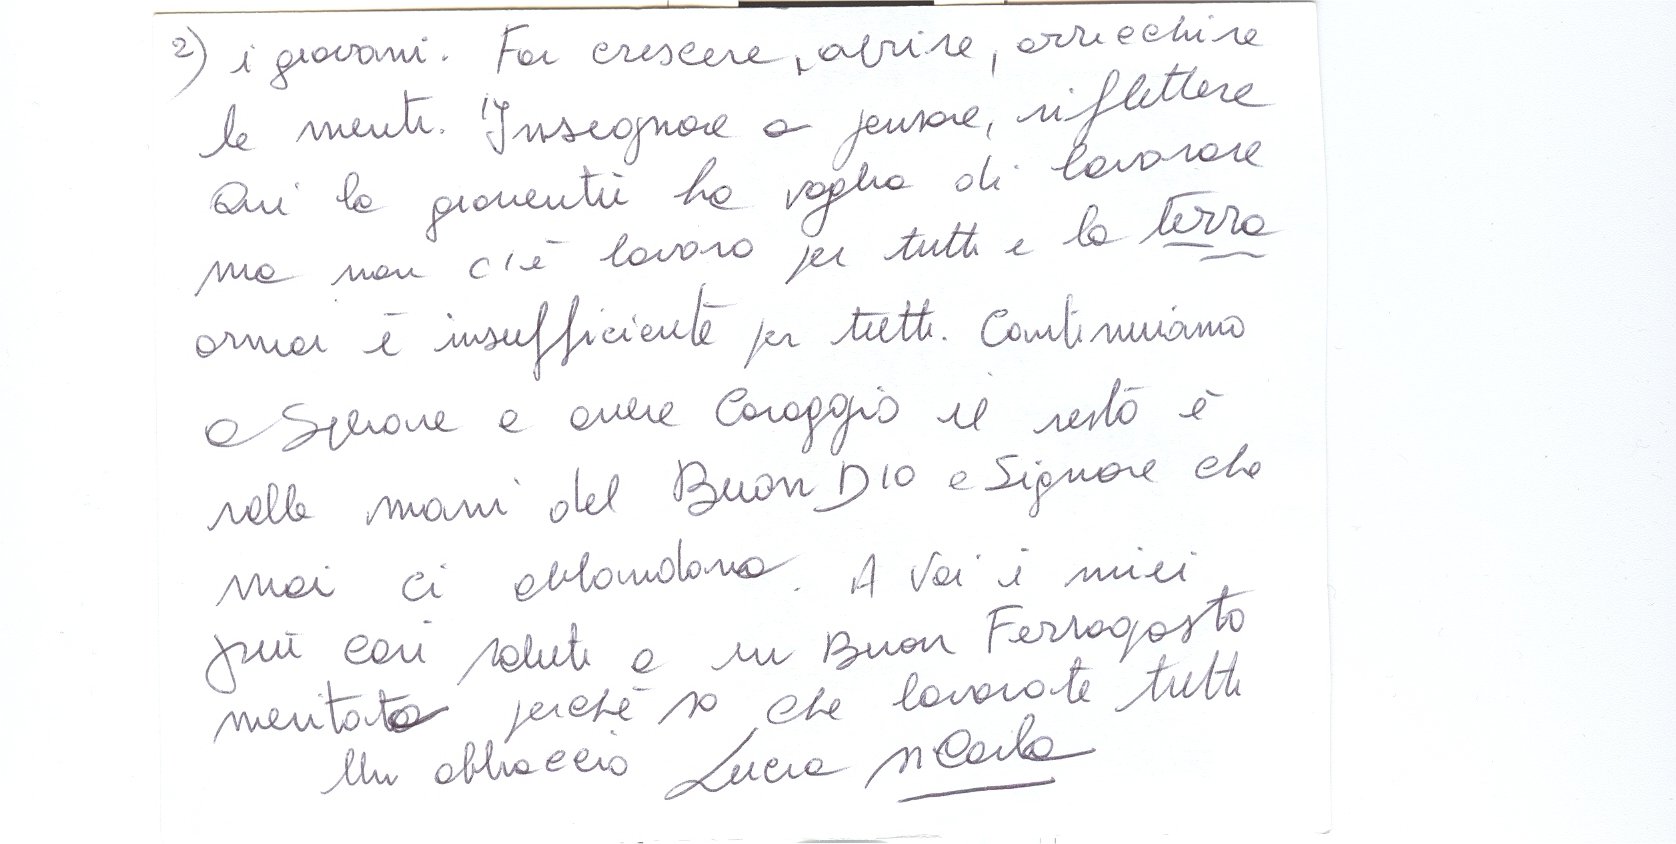 2) i giovani. Far crescere, aprire, arricchire
le menti. Insegnare a pensare, riflettere
Qui la gioventù ha voglia di lavorare
ma non c'è lavoro per tutti e la terra
ormai è insufficiente per tutti. Continuiamo
a Sperare e avere Coraggio il resto è
nelle mani del Buon DIO e Signore che
mai ci abbandona. A Voi i miei
più cari saluti e un Buon Ferragosto
meritato perchè so che lavorate tutti
Un abbraccio Lucia